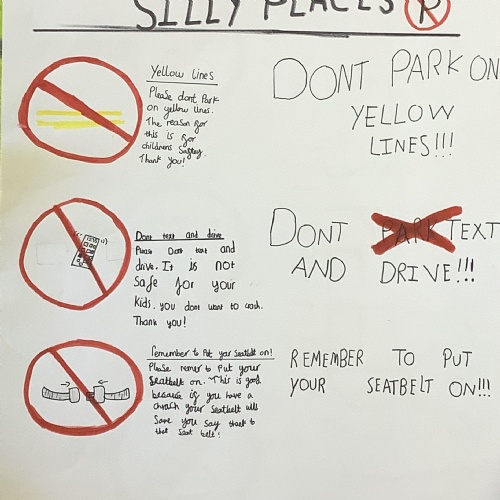 SILLY PLACES
P
Yellow Lines
Please dont Park
on yellow lines.
The reason for
this is for
childrens Saftey.
Thank you!
DONT PARK ON
YELLOW
LINES!!!
Dont text and drive
Please Dont text and
drive. It is not
Safe for your
Kids. you dont want to crash.
Thank you!
DONT PARK TEXT
AND DRIVE!!!
Remember to Put your Seatbelt on!
Please remer to Put your
Seatbelt on. This is good
because if you have a
your Seatbelt will
Save you Say thank to
that Seat belt!
REMEMBER TO PUT
YOUR SEATBELT ON!!!